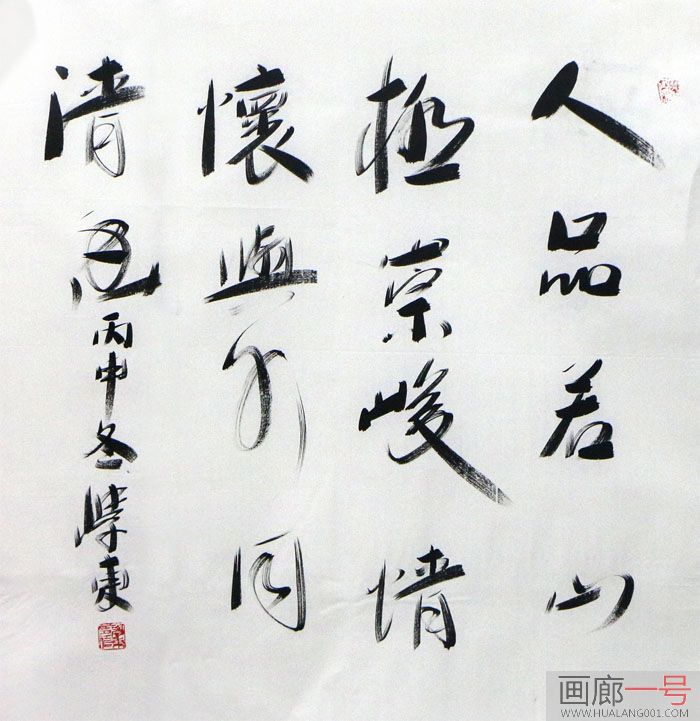 人品若山
極崇峻情
懷與水同
清 丙申冬學東
画廊一号
WWW.HUALANG001.COM